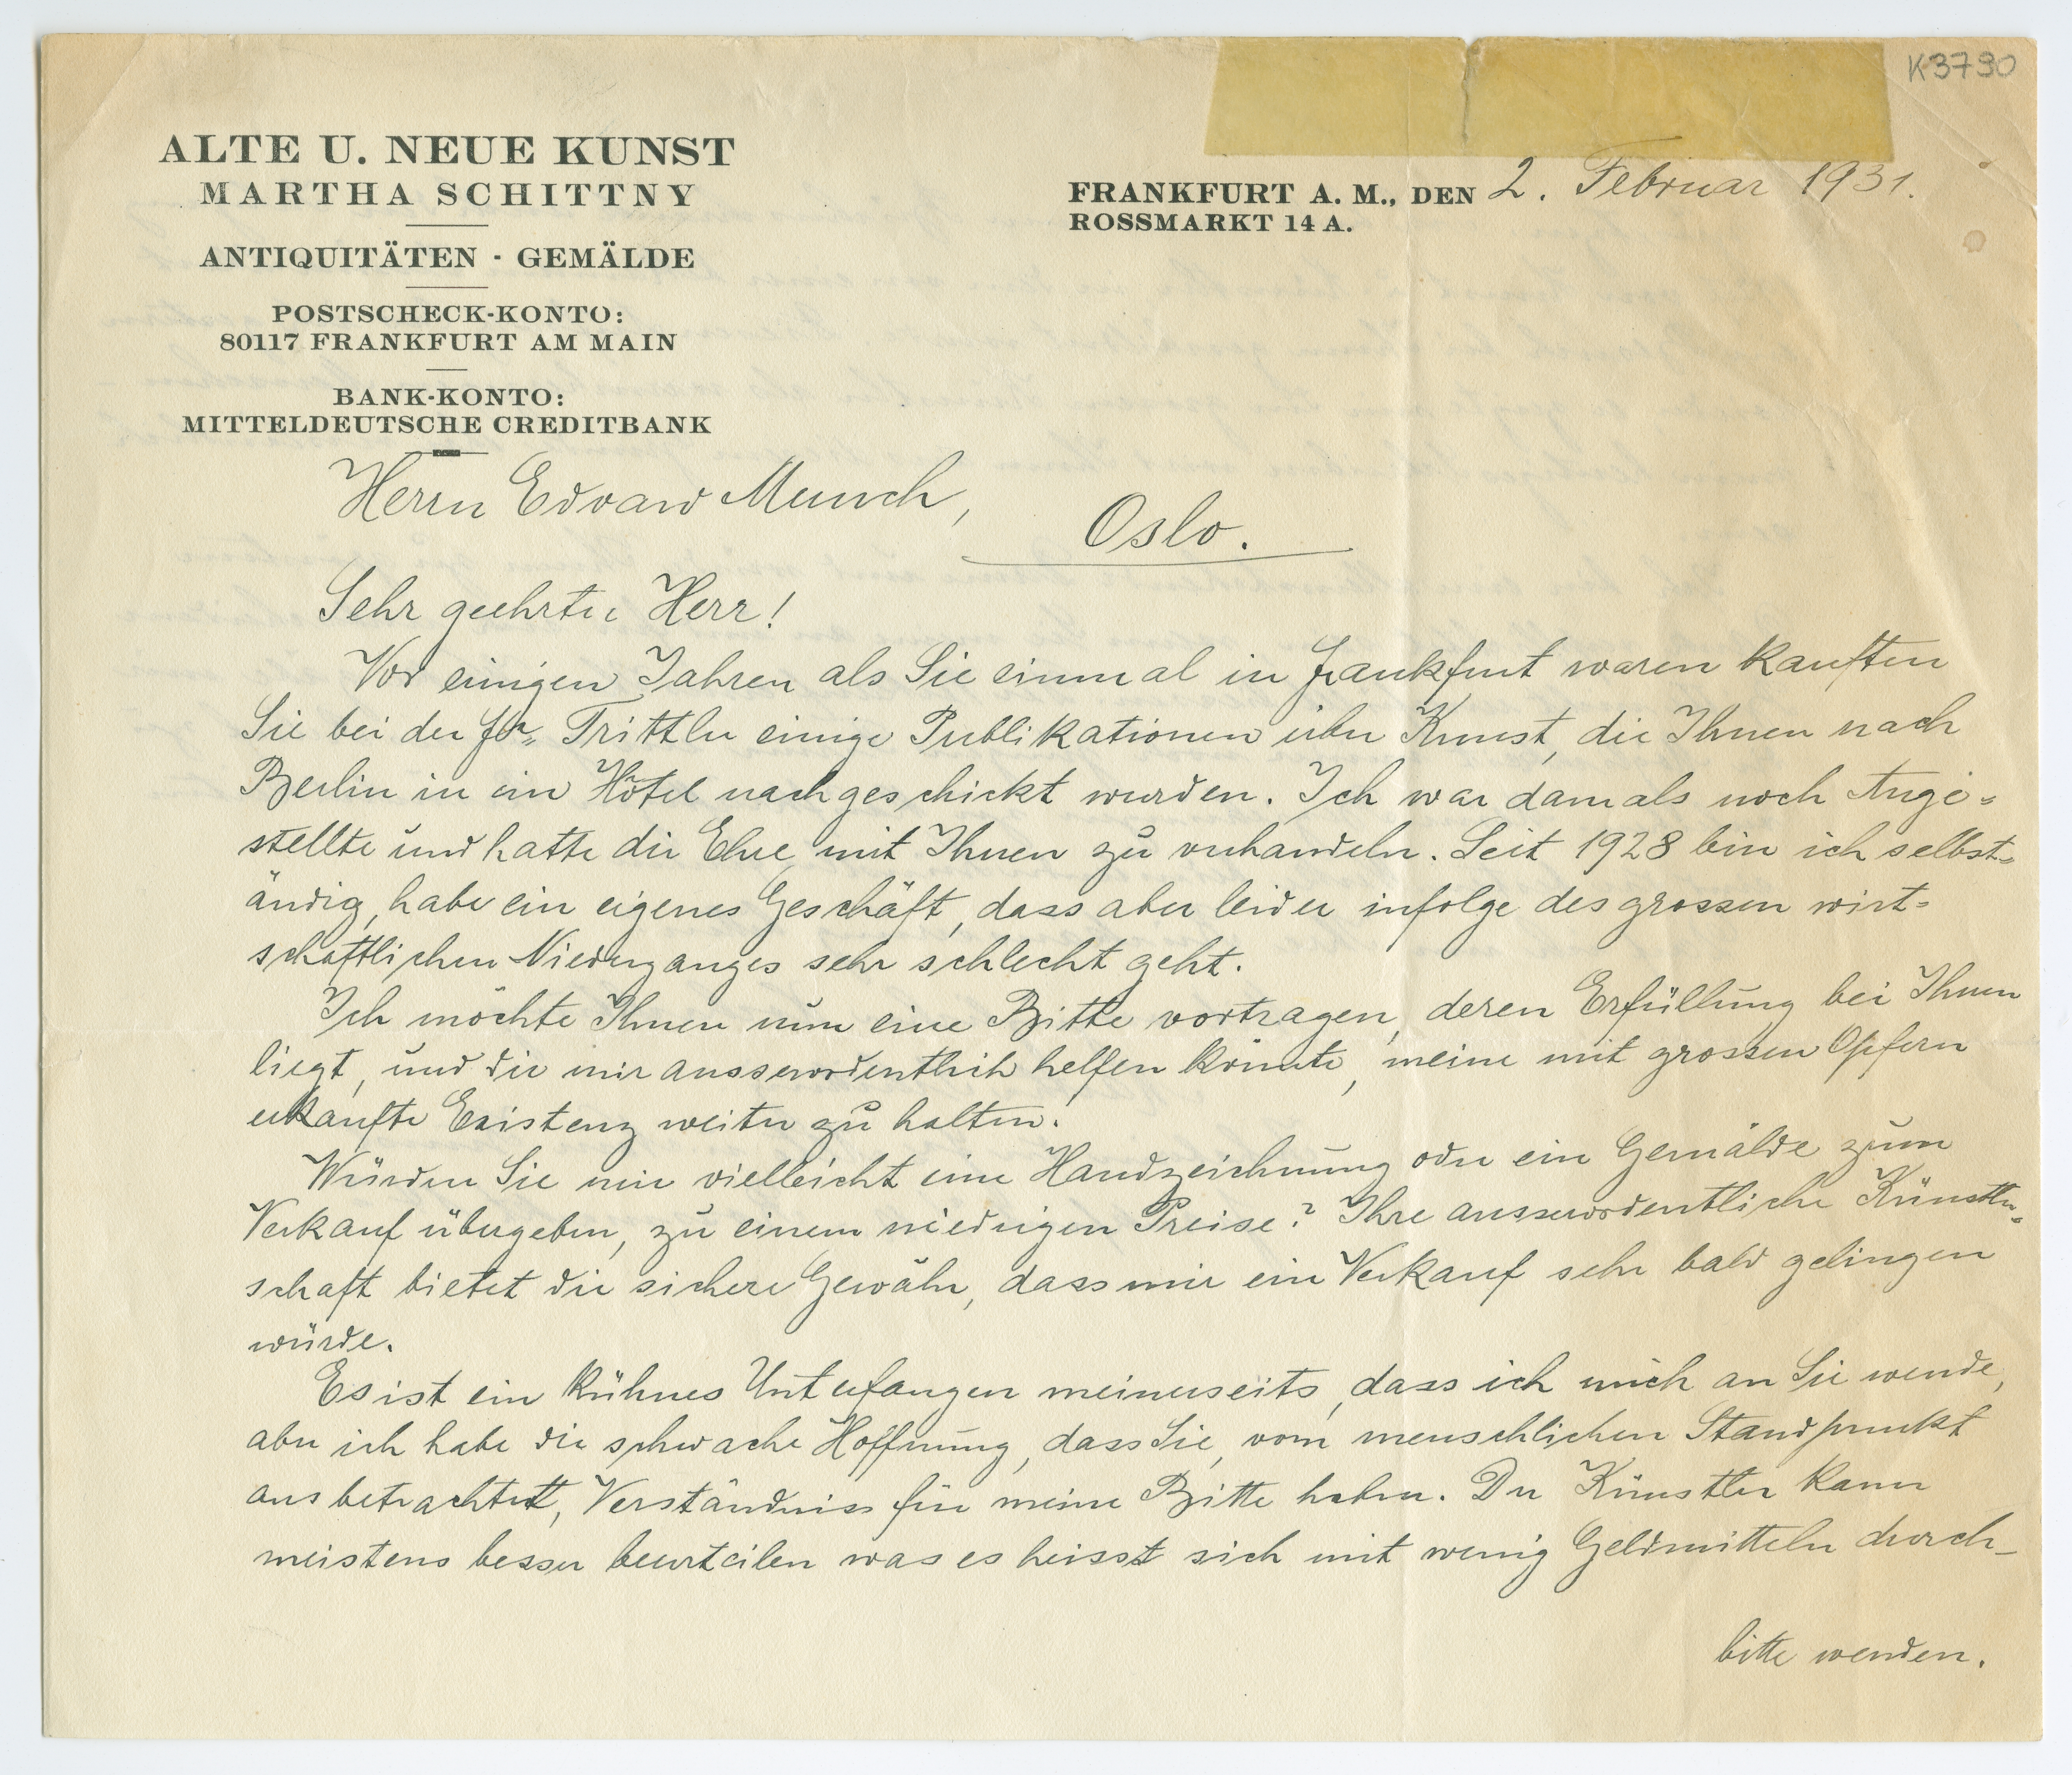 K3790
ALTE U. NEUE KUNST
MARTHA SCHITTNY
ANTIQUITÄTEN · GEMÄLDE
POSTSCHECK-KONTO:
80117 FRANKFURT AM MAIN
BANK-KONTO:
MITTELDEUTSCHE CREDITBANK
FRANKFURT A. M., DEN 2. Februar 1931.
ROSSMARKT 14 A.
Herrn Edvard Munch,
Oslo.
Sehr geehrter Herr!
Vor einigen Jahren als Sie einmal in Frankfurt waren kauften
Sie bei der Fa. Trittler einige Publikationen über Kunst, die Ihnen nach
Berlin in ein Hôtel nachgeschickt wurden. Ich war damals noch Ange=
stellte und hatte die Ehre mit Ihnen zu verhandeln. Seit 1928 bin ich selbst=
ändig, habe ein eigenes Geschäft, dass aber leider infolge des grossen wirt=
schaftlichen Niederganges sehr schlecht geht.
Ich möchte Ihnen nun eine Bitte vortragen, deren Erfüllung bei Ihnen
liegt, und die mir ausserordentlich helfen könnte, meine mit grossen Opfern
erkaufte Existenz weiter zu halten.
Würden Sie mir vielleicht eine Handzeichnung oder ein Gemälde zum
Verkauf übergeben, zu einem niedrigen Preise? Ihre ausserordentliche Künstler=
schaft bietet die sichere Gewähr, dass mir ein Verkauf sehr bald gelingen
würde.
Es ist ein kühnes Unterfangen meinerseits, dass ich mich an Sie wende,
aber ich habe die schwache Hoffnung, dass Sie, vom menschlichen Standpunkt
aus betrachtet, Verständniss für meine Bitte haben. Der Künstler kann
meistens besser beurteilen was es heisst sich mit wenig Geldmitteln durch-
bitte wenden.